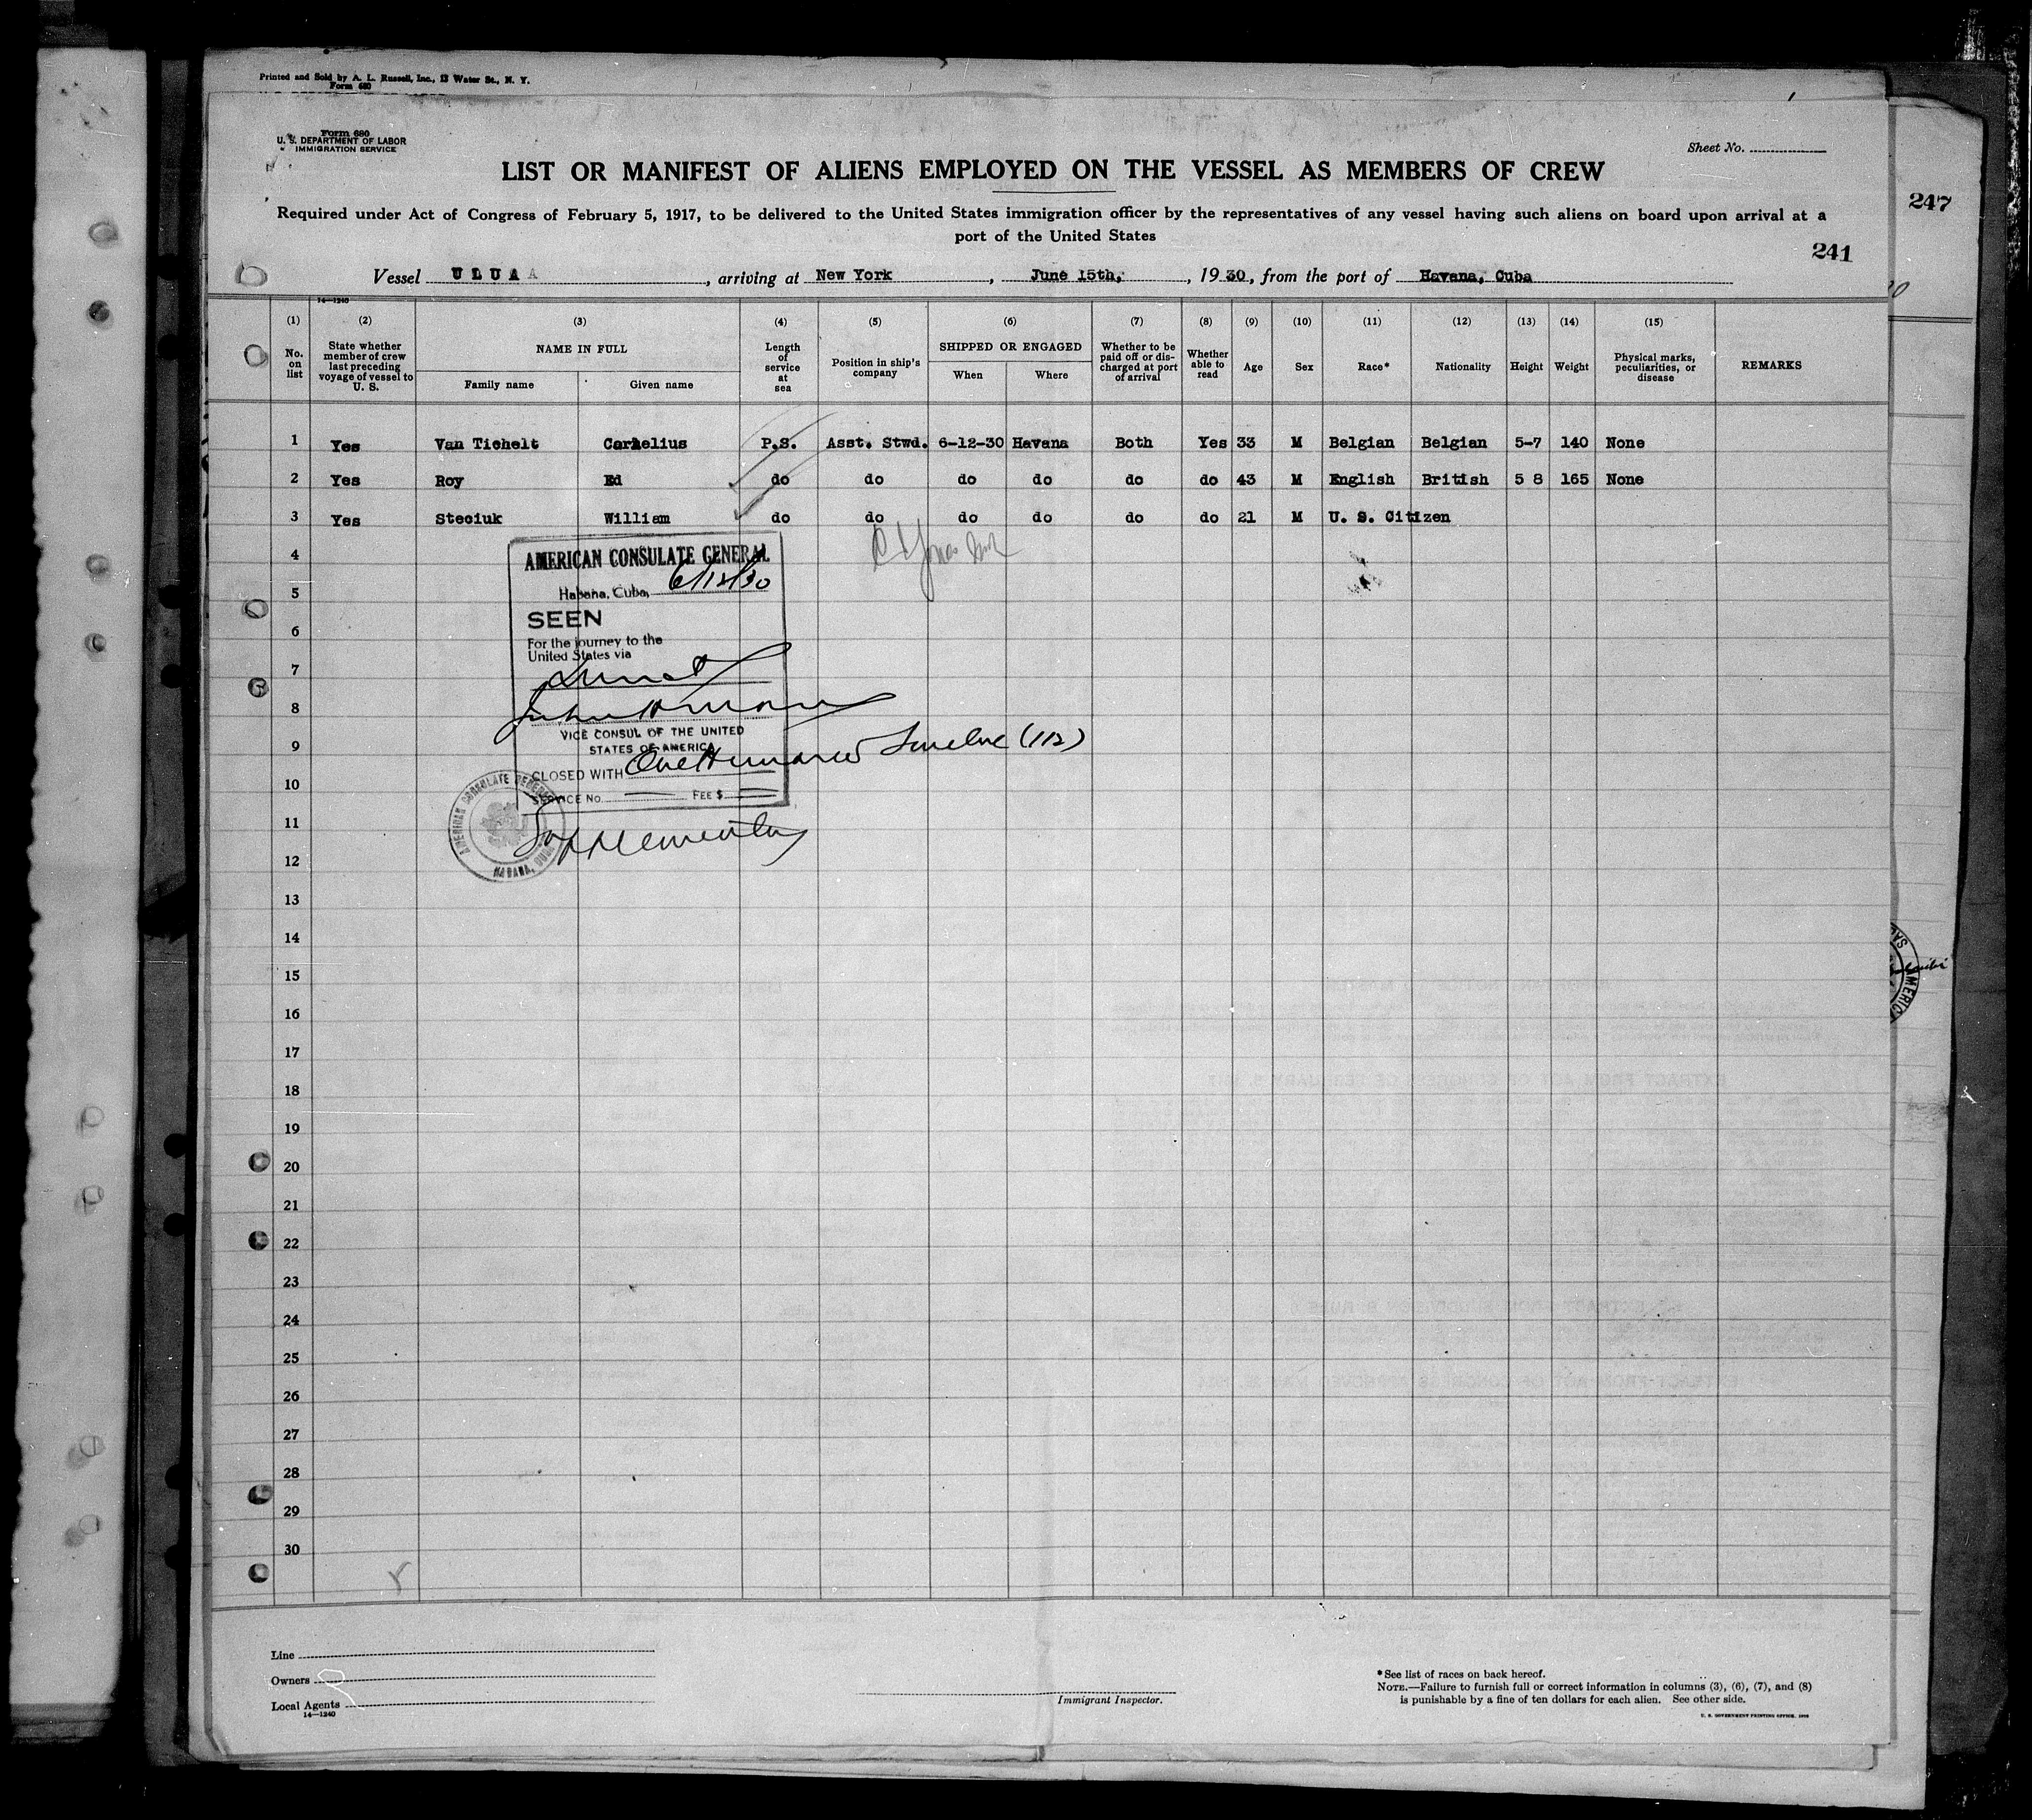 Printed and Sold by A. L. Russell, Inc., 13 Water St., N. Y.
Form 680
Form 680
U. S. DEPARTMENT OF LABOR
IMMIGRATION SERVICE
Sheet No.
LIST OR MANIFEST OF ALIENS EMPLOYED ON THE VESSEL AS MEMBERS OF CREW
Required under Act of Congress of February 5, 1917, to be delivered to the United States immigration officer by the representatives of any vessel having such aliens on board upon arrival at a
port of the United States
247
241
Vessel ULUA A, arriving at New York, June 15th, 1930, from the port of Havana, Cuba
14—1240
(1) (2) (3) (4) (5) (6) (7) (8) (9) (10) (11) (12) (13) (14) (15)
No. on list
State whether member of crew last preceding voyage of vessel to U. S.
NAME IN FULL
Family name Given name
Length of service at sea
Position in ship's company
SHIPPED OR ENGAGED
When Where
Whether to be paid off or discharged at port of arrival
Whether able to read
Age
Sex
Race*
Nationality
Height
Weight
Physical marks, peculiarities, or disease
REMARKS
1 Yes Van Tichelt Cornelius P.S. Asst. Stwd. 6-12-30 Havana Both Yes 33 M Belgian Belgian 5-7 140 None
2 Yes Roy Ed do do do do do do 43 M English British 5 8 165 None
3 Yes Steciuk William do do do do do do 21 M U. S. Citizen
4
5
6
7
8
9
10
11
12
13
14
15
16
17
18
19
20
21
22
23
24
25
26
27
28
29
30
AMERICAN CONSULATE GENERAL
Habana, Cuba, 6/12/30
SEEN
For the journey to the
United States via
VICE CONSUL OF THE UNITED
STATES OF AMERICA
CLOSED WITH One Hundred Twelve (112)
SERVICE No. FEE $
Supplementary
AMERICAN CONSULATE GENERAL
HABANA, CUBA
Line
Owners
Local Agents
14—1240
Immigrant Inspector.
*See list of races on back hereof.
NOTE.—Failure to furnish full or correct information in columns (3), (6), (7), and (8)
is punishable by a fine of ten dollars for each alien. See other side.